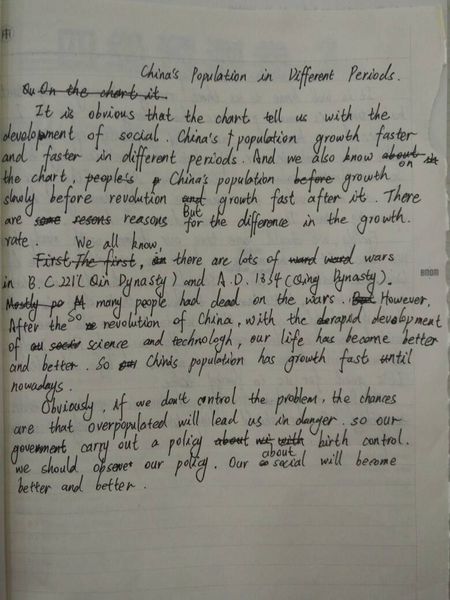 China's Population in Different Periods.
On On the chart it
It is obvious that the chart tell us with the
development of social. China's population growth faster
and faster in different periods. And we also know about on
the chart, people's China's population before growth
slowly before revolution and But growth fast after it. There
are some resons reasons for the difference in the growth.
rate. We all know,
First The first, there are lots of ward ward wars
in B.C 221( Qin Dynasty) and A.D. 1314 (Qing Dynasty).
Mostly So many people had dead on the wars. But However,
After the revolution of China, with the rapid development
of science and technologh, our life has become better
and better. So China's population has growth fast until
nowadays.
Obviously, if we don't control the problem, the chances
are that overpopulated will lead us in danger. so our
government carry out a policy about with birth control.
we should observe about our policy. Our social will become
better and better.
BNOM